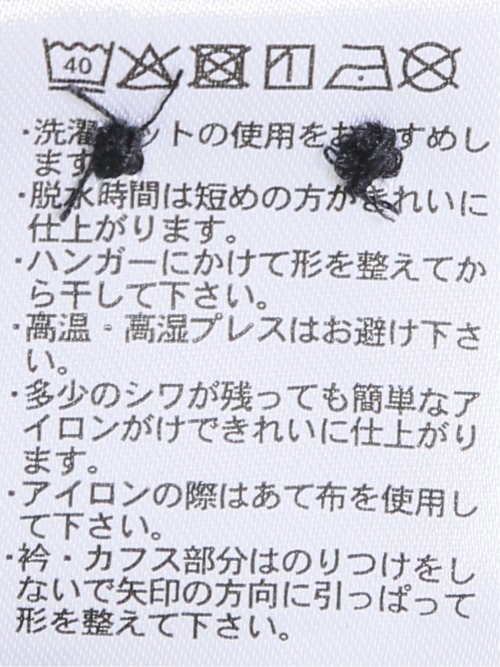 40
・洗濯ットの使用をおすめし
ます
・脱水時間は短めの方がきれいに
仕上がります。
・ハンガーにかけて形を整えてか
ら干して下さい。
・高温・高湿プレスはお避け下さ
い。
・多少のシワが残っても簡単なア
イロンがけできれいに仕上がり
ます。
・アイロンの際はあて布を使用し
て下さい。
・衿・カフス部分はのりつけをし
ないで矢印の方向に引っぱって
形を整えて下さい。